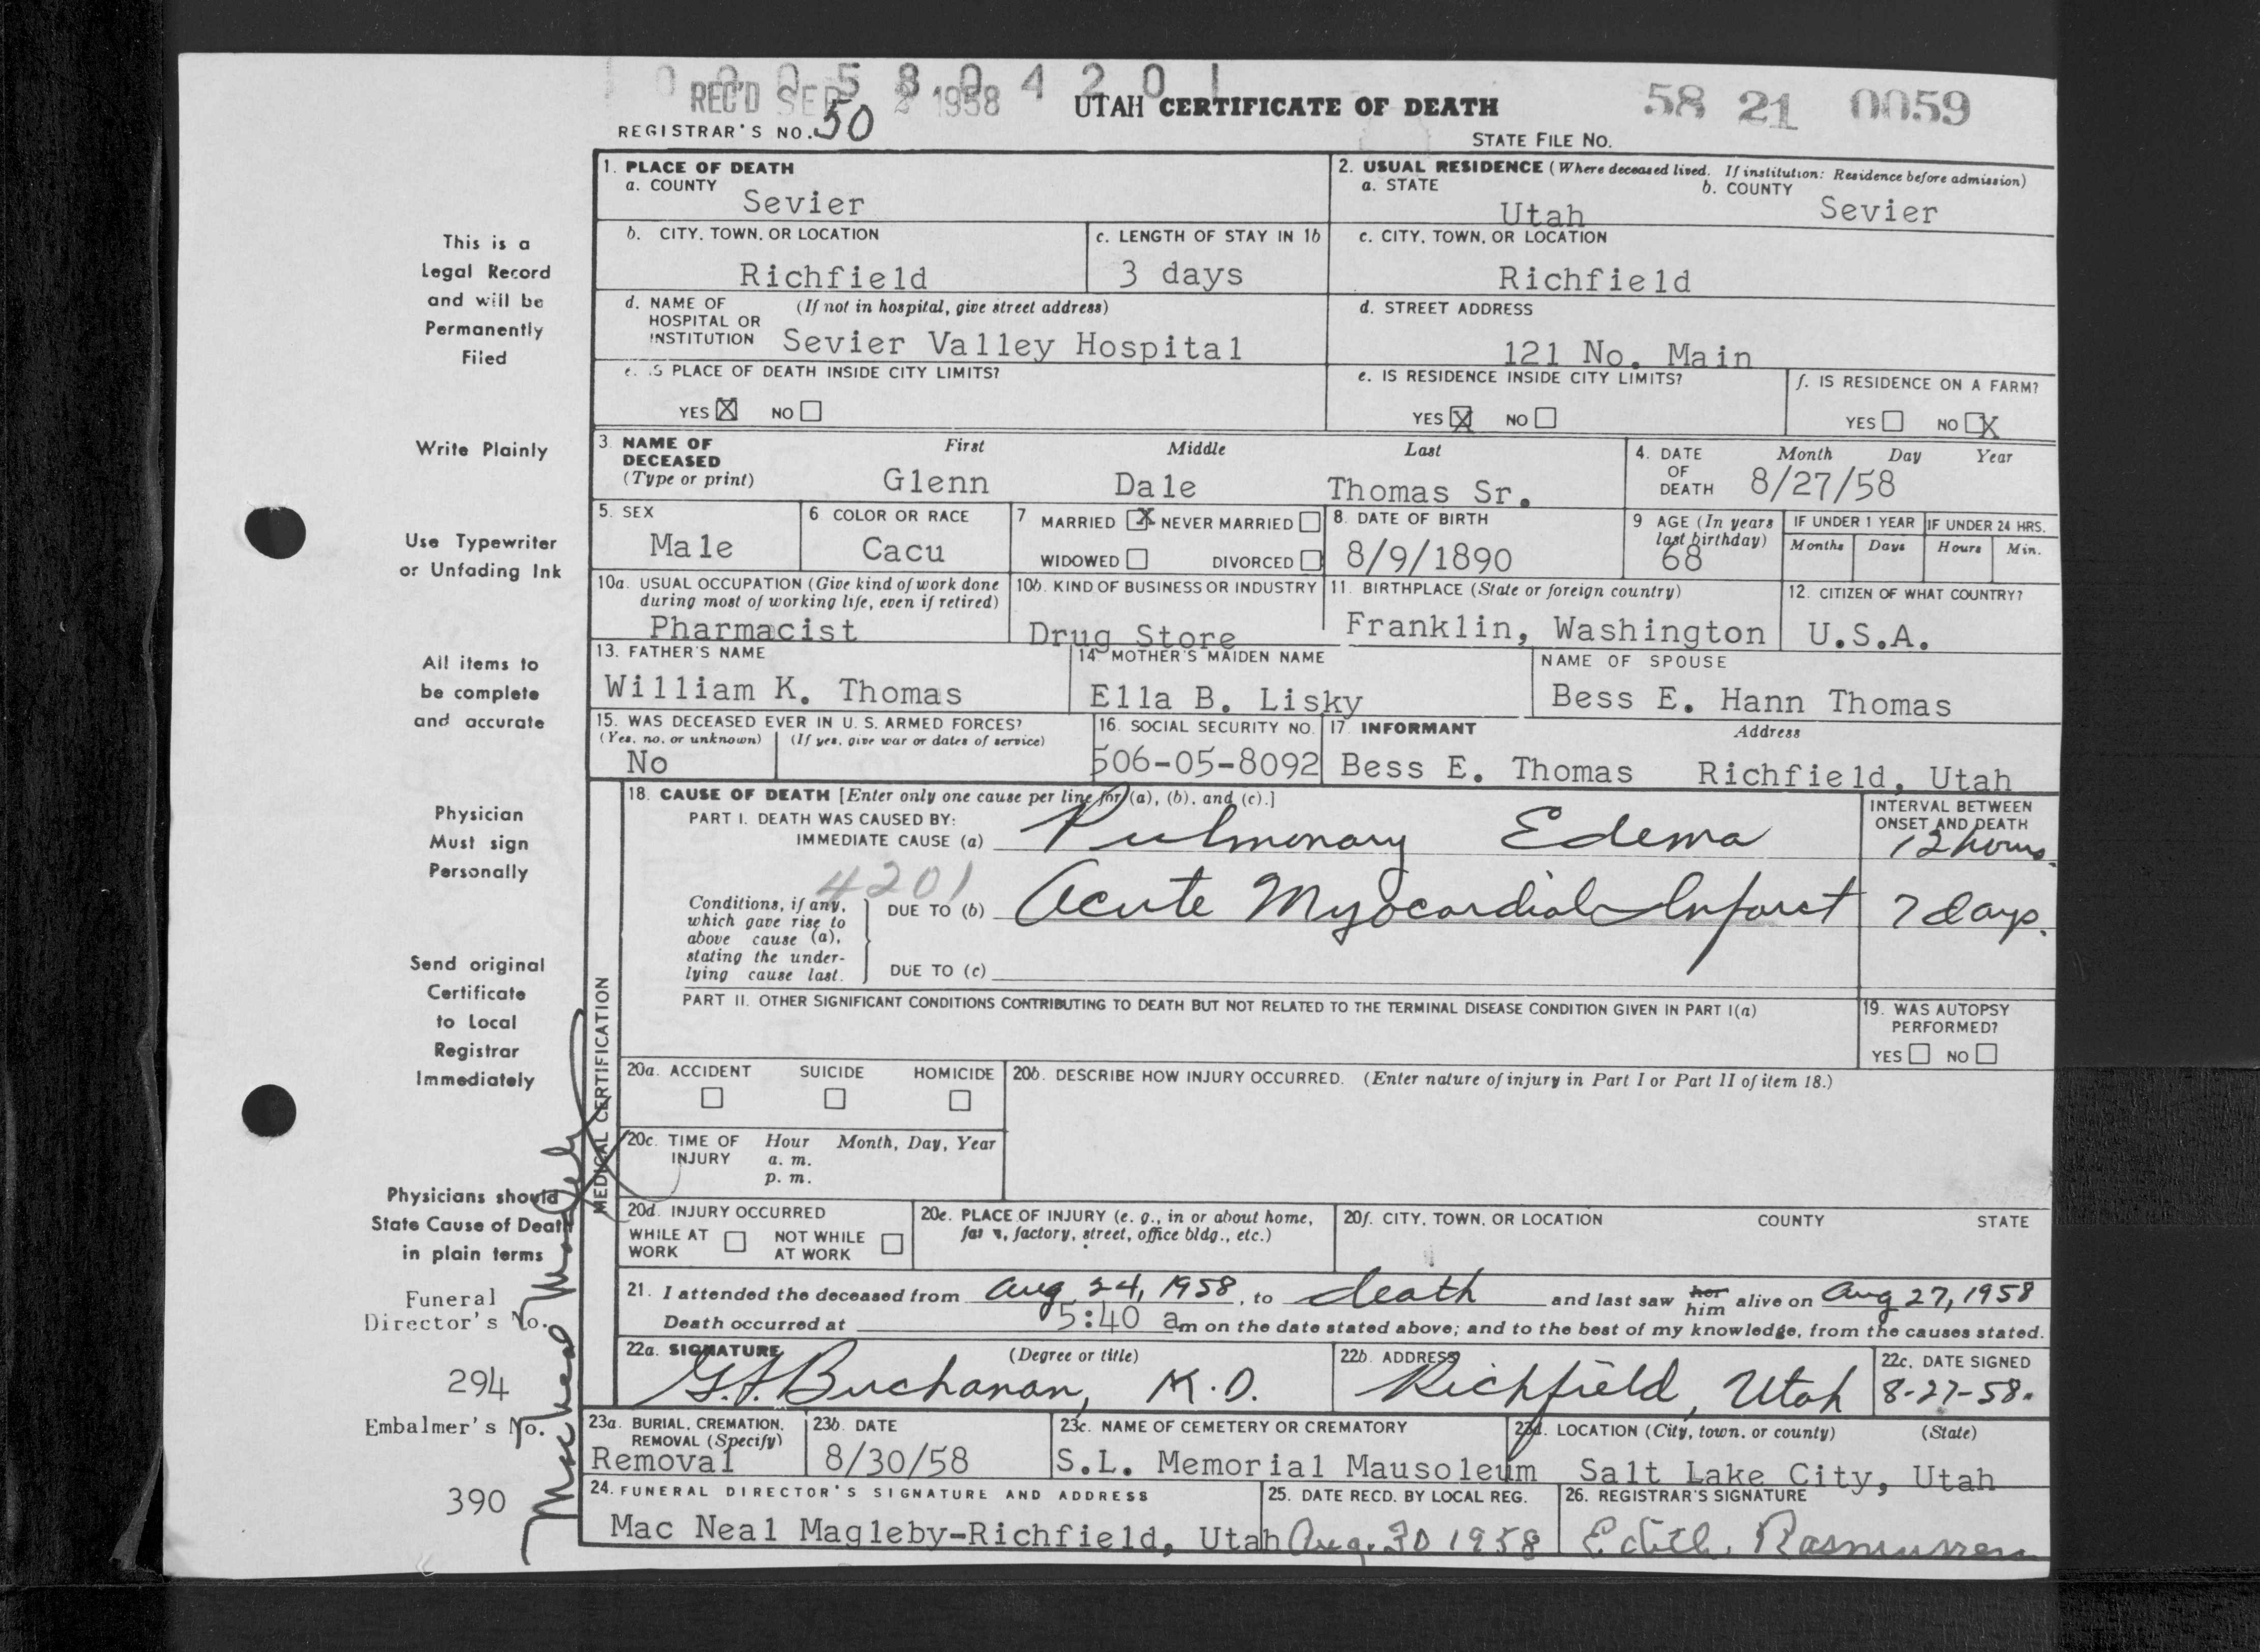 0 0 0 5 8 0 4 2 0 1
REC'D SEP 2 1958
UTAH CERTIFICATE OF DEATH
58 21 0059
REGISTRAR'S NO. 50
STATE FILE NO.
This is a
Legal Record
and will be
Permanently
Filed
Write Plainly
Use Typewriter
or Unfading Ink
All items to
be complete
and accurate
Physician
Must sign
Personally
Send original
Certificate
to Local
Registrar
Immediately
Physicians should
State Cause of Death
in plain terms
Funeral
Director's No.
294
Embalmer's No.
390
MacNeal Magleby
MEDICAL CERTIFICATION
1. PLACE OF DEATH
a. COUNTY
Sevier
2. USUAL RESIDENCE (Where deceased lived. If institution: Residence before admission)
a. STATE b. COUNTY
Utah Sevier
b. CITY, TOWN, OR LOCATION
Richfield
c. LENGTH OF STAY IN 1b
3 days
c. CITY, TOWN, OR LOCATION
Richfield
d. NAME OF (If not in hospital, give street address)
HOSPITAL OR
INSTITUTION Sevier Valley Hospital
d. STREET ADDRESS
121 No. Main
e. IS PLACE OF DEATH INSIDE CITY LIMITS?
YES X NO
e. IS RESIDENCE INSIDE CITY LIMITS?
YES X NO
f. IS RESIDENCE ON A FARM?
YES NO X
3. NAME OF DECEASED (Type or print)
First Middle Last
Glenn Dale Thomas Sr.
4. DATE OF DEATH Month Day Year
8/27/58
5. SEX
Male
6 COLOR OR RACE
Cacu
7 MARRIED X NEVER MARRIED
WIDOWED DIVORCED
8. DATE OF BIRTH
8/9/1890
9 AGE (In years
last birthday)
68
IF UNDER 1 YEAR IF UNDER 24 HRS.
Months Days Hours Min.
10a. USUAL OCCUPATION (Give kind of work done
during most of working life, even if retired)
Pharmacist
10b. KIND OF BUSINESS OR INDUSTRY
Drug Store
11. BIRTHPLACE (State or foreign country)
Franklin, Washington
12. CITIZEN OF WHAT COUNTRY?
U.S.A.
13. FATHER'S NAME
William K. Thomas
14 MOTHER'S MAIDEN NAME
Ella B. Lisky
NAME OF SPOUSE
Bess E. Hann Thomas
15. WAS DECEASED EVER IN U. S. ARMED FORCES?
(Yes, no, or unknown) (If yes, give war or dates of service)
No
16. SOCIAL SECURITY NO.
506-05-8092
17 INFORMANT Address
Bess E. Thomas Richfield, Utah
18. CAUSE OF DEATH [Enter only one cause per line for (a), (b), and (c).]
PART I. DEATH WAS CAUSED BY:
IMMEDIATE CAUSE (a) Pulmonary Edema
INTERVAL BETWEEN
ONSET AND DEATH
12 hours.
4201
Conditions, if any,
which gave rise to
above cause (a),
stating the under-
lying cause last.
DUE TO (b) Acute Myocardial Infarct 7 days.
DUE TO (c)
PART II. OTHER SIGNIFICANT CONDITIONS CONTRIBUTING TO DEATH BUT NOT RELATED TO THE TERMINAL DISEASE CONDITION GIVEN IN PART I(a)
19. WAS AUTOPSY
PERFORMED?
YES NO
20a. ACCIDENT SUICIDE HOMICIDE
20b. DESCRIBE HOW INJURY OCCURRED. (Enter nature of injury in Part I or Part II of item 18.)
20c. TIME OF INJURY Hour Month, Day, Year
a. m.
p. m.
20d. INJURY OCCURRED
WHILE AT WORK NOT WHILE AT WORK
20e. PLACE OF INJURY (e. g., in or about home,
farm, factory, street, office bldg., etc.)
20f. CITY, TOWN, OR LOCATION COUNTY STATE
21. I attended the deceased from Aug 24, 1958, to death and last saw her him alive on Aug 27, 1958
Death occurred at 5:40 a m on the date stated above; and to the best of my knowledge, from the causes stated.
22a. SIGNATURE (Degree or title)
Buchanan, M.D.
22b. ADDRESS
Richfield, Utah
22c. DATE SIGNED
8-27-58.
23a. BURIAL, CREMATION,
REMOVAL (Specify)
Removal
23b. DATE
8/30/58
23c. NAME OF CEMETERY OR CREMATORY
S.L. Memorial Mausoleum
23d. LOCATION (City, town, or county) (State)
Salt Lake City, Utah
24. FUNERAL DIRECTOR'S SIGNATURE AND ADDRESS
Mac Neal Magleby-Richfield, Utah
25. DATE RECD. BY LOCAL REG.
Aug. 30 1958
26. REGISTRAR'S SIGNATURE
Edith Rasmussen